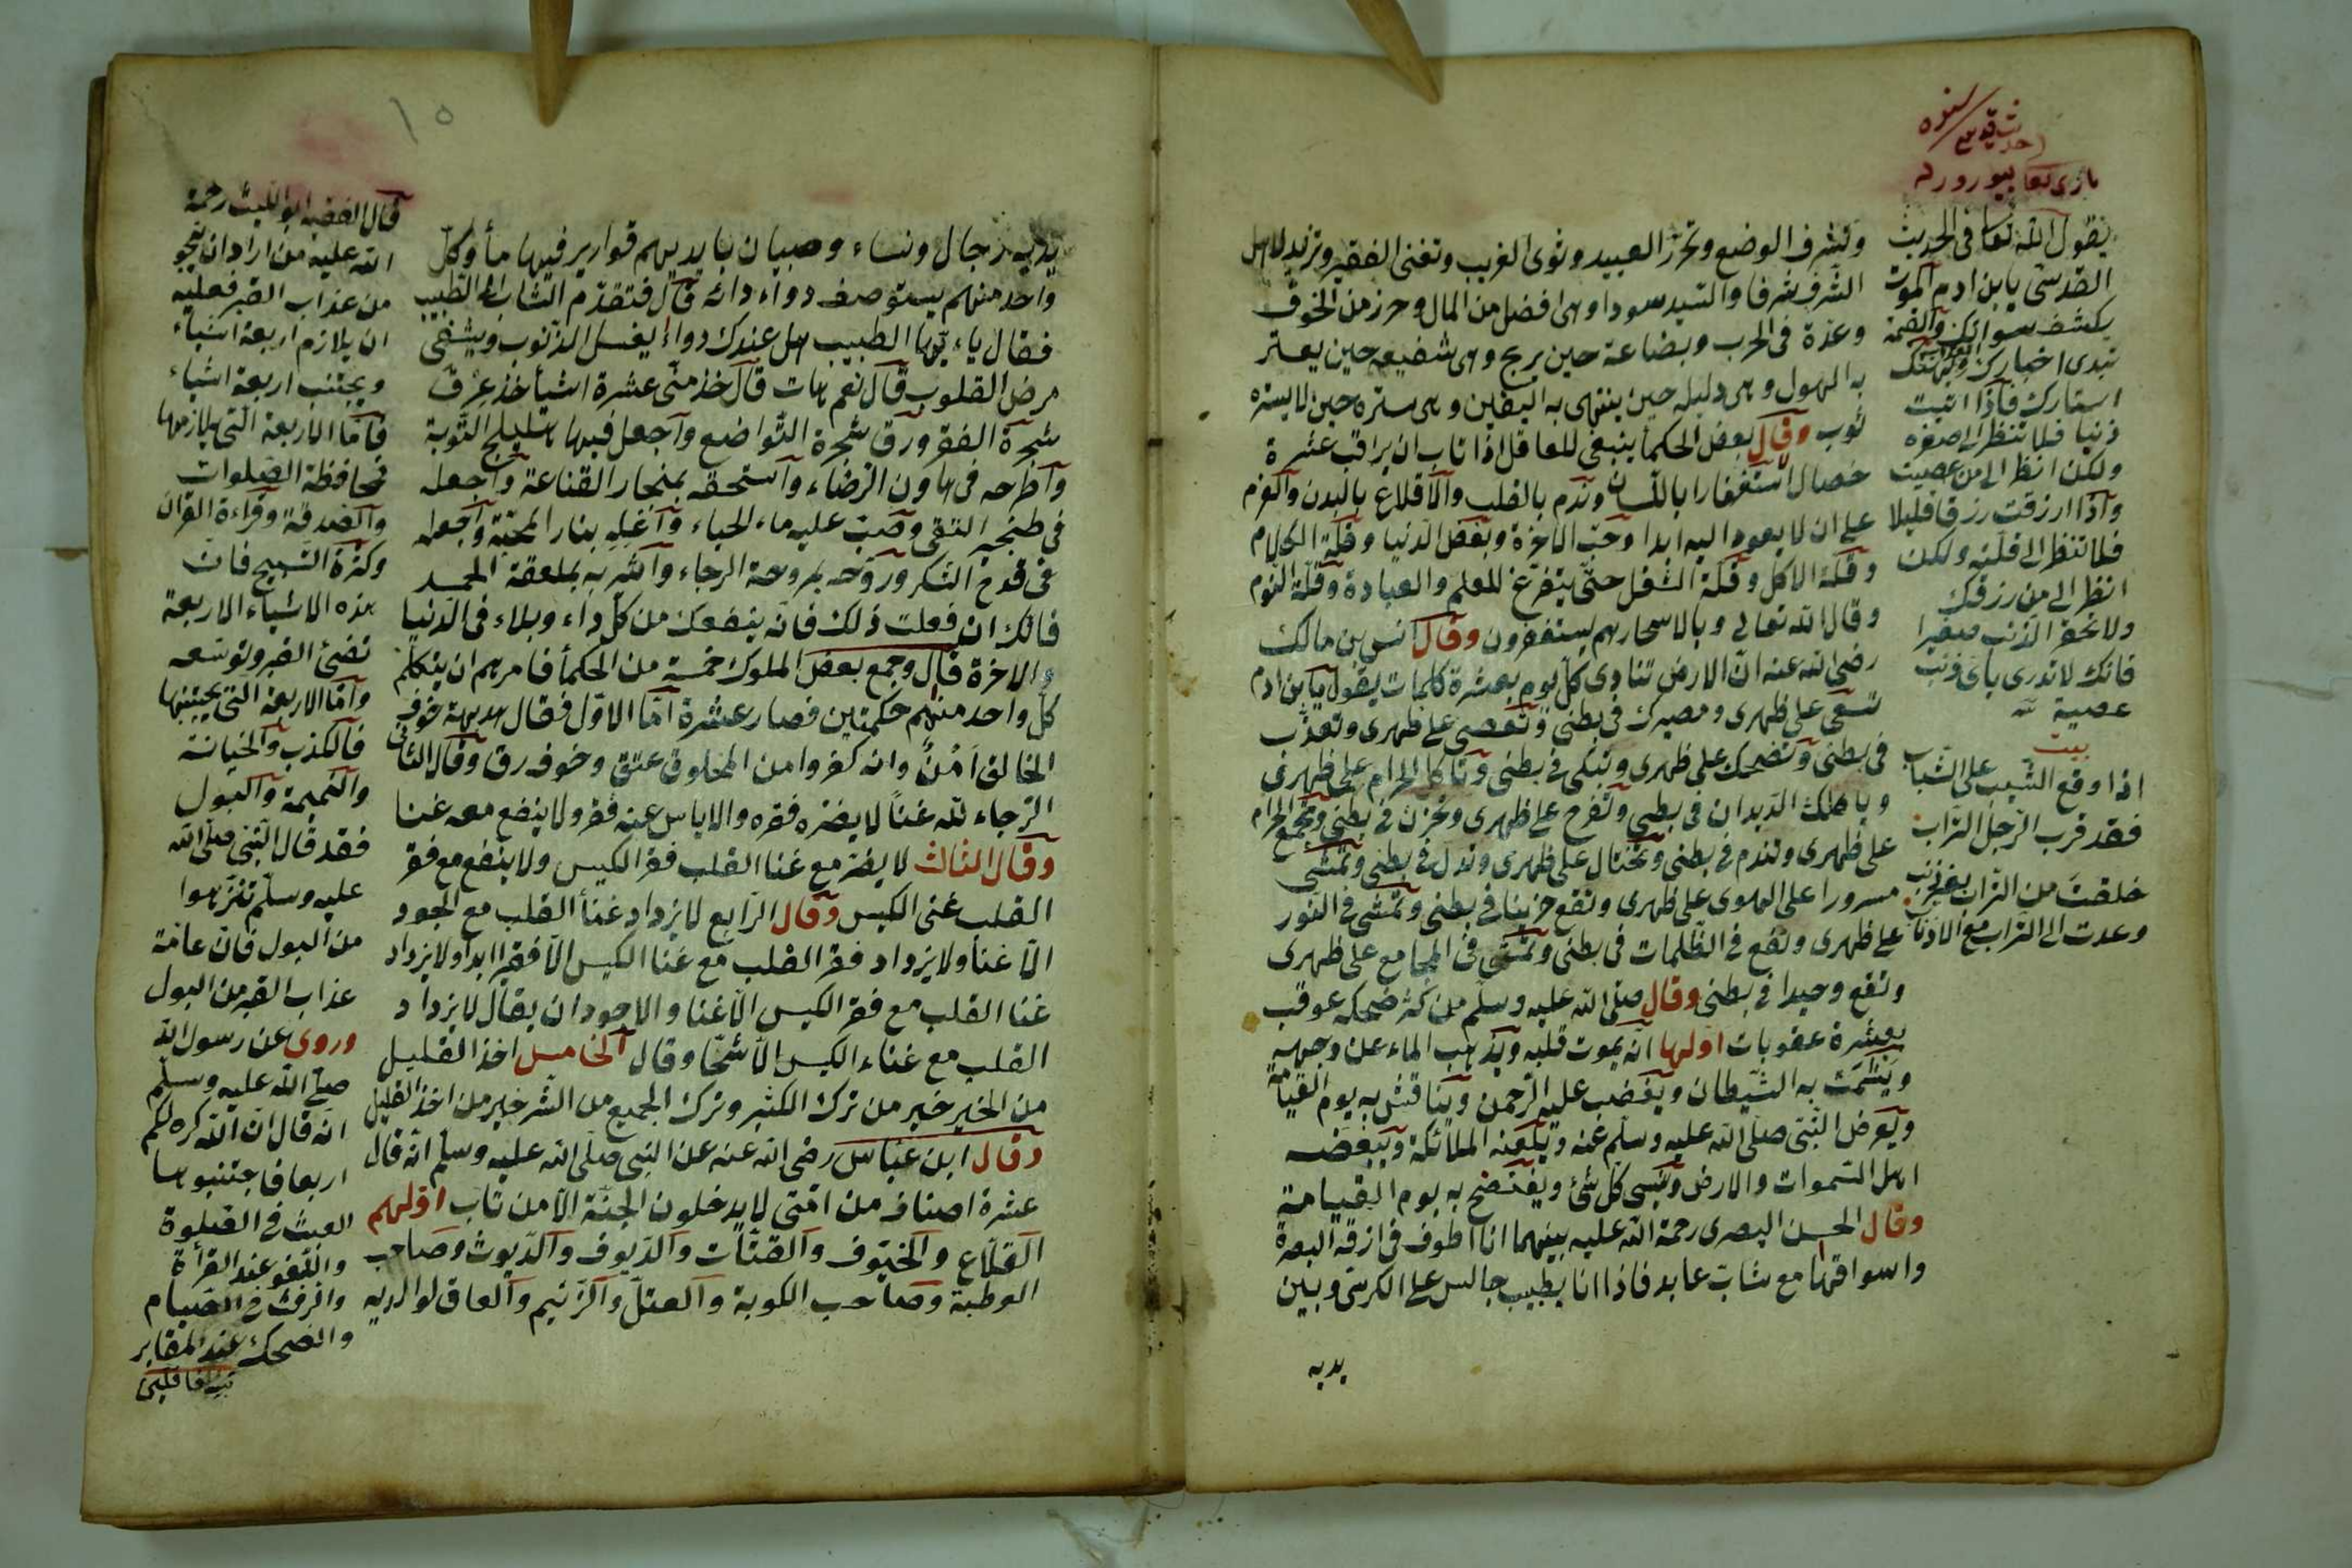 وتشرف الوضع وتحرّر العبيد وتؤى الغريب وتغنى الفقير وتزيد لاهل
الشرف شرفا والسّيد سوددا وهى افضل من المال وحرز من الخوف
وعدّة فى الحرب وبضاعة حين يربح وهى شفيعه حين يعتر
به الهول وهى دليله حين ينتهى به اليقين وهى ستره حين لا يستره
ثوب وقال بعض الحكمأ ينبغى للعاقل اذا تاب ان يراقب عشرة
خصال استغفارا باللّسان وندم بالقلب والاقلاع بالبدن والعزم
على ان لا يعود اليه ابدا وحبّ الاخرة وبغض الدّنيا وقلّة الكلام
وقلّة الاكل وقلّة الشغل حتّى يتفرّغ للعلم والعبادة وقلّة النّوم
وقال الله تعالى وبالاسحار هم يستغفرون وقال انس بن مالك
رضى الله عنه انّ الارض تنادى كلّ يوم بعشرة كلمات يقول يا بن ادم
تسعى على ظهرى ومصيرك فى بطنى وتعصى على ظهرى وتعذّب
فى بطنى وتضحك على ظهرى وتبكى فى بطنى وتأكل الحرام على ظهرى
ويأكلك الدّيدان فى بطنى وتفرح على ظهرى وتحزن فى بطنى وتجمع الحرام
على ظهرى وتندم فى بطنى وتختال على ظهرى وتذل فى بطنى وتمشى
مسرورا على الهوى على ظهرى وتقع حزينا فى بطنى وتمشى فى النّور
على ظهرى وتقع فى الظلمات فى بطنى وتمشى فى المجامع على ظهرى
وتقع وحيدا فى بطنى وقال صلّى الله عليه وسلّم من كثر ضحكه عوقب
بعشرة عقوبات اوّلها انّه يموت قلبه ويذهب الماء عن وجهه
ويشمت به الشّيطان ويغضب عليه الرّحمن ويناقش به يوم القيامة
ويعرض النّبى صلّى الله عليه وسلّم عنه ويلعنه الملائكة ويبغضه
اهل السّموات والارض وينسى كل شئ ويفتضح به يوم القيامة
وقال الحسن البصرى رحمة الله عليه بينهما انا اطوف فى ازقة البصرة
واسواقها مع شابّ عابد فاذا انا بطبيب جالس على الكرسى وبين
يديه
بارى تعا بيورور
يقول الله تعا فى الحديث
القدسّى يابن ادم الموت
يكشف سوالك والقيمة
تبدى اخبارك
استارك فاذا اتيت
ذنبا فلا تنظر الى صغره
ولكن انظر الى من عصيت
واذا ارزقت رزقا قليلا
فلا تنظر الى قلّته ولكن
انظر الى من رزقك
ولا تحقر الذّنب صغيرا
فانّك لا تدرى باىّ ذنب
عصية لله
بيت
اذا وقع الشّيب على الشّباب
فقد قرب الرّجل التّراب
خلقت من التّراب بغير ذنب
وعدت الى التّراب مع الاذناب
١٥
يديه رجال ونساء وصبيان بايديهم قوارير فيها مأ وكلّ
واحد منهم يستوصف دواء دائه قال فتقدّم الشّاب الى الطّبيب
فقال ياء يّها الطبيب هل عندك دواء يغسل الذّنوب ويشفى
مرض القلوب قال نعم هات قال خذ منّى عشرة اشيأ خذ عرق
شجرة الفقر وورق شجرة التّواضع واجعل فيها هليلج التّوبة
واطرحه فى هاون الرّضاء واستحقه بمنحار القناعة واجعله
فى طنجير التقى وصبّ عليه ماء الحياء واغله بنار المحبّة واجعله
فى قدح الشكر وروّحه بمروحة الرجاء واشربه بملعقة الحمد
فانّك ان فعلت ذلك فانّه ينفعك من كلّ داء وبلاء فى الدّنيا
والاخرة قال وجمع بعض الملوك خمسة من الحكمأ فامرهم ان يتكلّم
كلّ واحد منهم حكمتين فصار عشرة امّا الاوّل فقال هديهة خوف
الخالق امن وانه كفروا من المخلوق عتق وخوفه رق وقال الثانى
الرّجاء لله غناً لا يضرّه فقره والاياس عنه فقر ولا ينفع معه غنا
وقال الثالث لا يضرّ مع غنا القلب فقر الكيس ولا ينفع مع فقر
القلب غنى الكيس وقال الرّابع لا يزداد غنأ القلب مع الجود
الّا غنأ ولا يزداد فقر القلب مع غنا الكيس الّا فقيرا ابدا ولا يزداد
غنا القلب مع فقر الكيس الّا غنا والاجود ان يقال لا يزداد
القلب مع غناء الكيس الّا شحّا وقال الخامس اخذ القليل
من الخير خير من ترك الكثير وترك الجميع من الشر خير من اخذ القليل
وقال ابن عبّاس رضى الله عنه عن النبى صلّى الله عليه وسلّم انّه قال
عشرة اصناف من امّتى لا يدخلون الجنّة الّا من تاب اوّلهم
القلّاع والخيّوف والقتّات والدّيوف والدّيوث وصاحب
العرطبة وصاحب الكوبة والعتلّ والزّنيم والعاق لوالديه
قال الفقيه ابو اللّيث رحمة
الله عليه من اراد ان ينجو
من عذاب القبر فعليه
ان يلازم اربعة اشياء
ويجتنب اربعة اشياء
فامّا الاربعة الّتى يلازمها
فمحافظة الصّلوات
والصّدقة وقراءة القران
وكثرة التّسبيح فانّ
هذه الاشياء الاربعة
تضئ القبر وتوسّعه
وامّا الاربعة الّتى يجتنبها
فالكذب والخيانة
والنّميمة والبول
فقد قال النّبى صلّى الله
عليه وسلّم تنزّهوا
من البول فانّ عامّة
عذاب القبر من البول
وروى عن رسول الله
صلّى الله عليه وسلّم
انّه قال انّ الله كره لكم
اربعا فاجتنبوها
العبث فى الصّلوة
واللّغو عند القرأة
والرّفث فى الصّيام
والضحك عند المقابر
تنبيه الغافلين